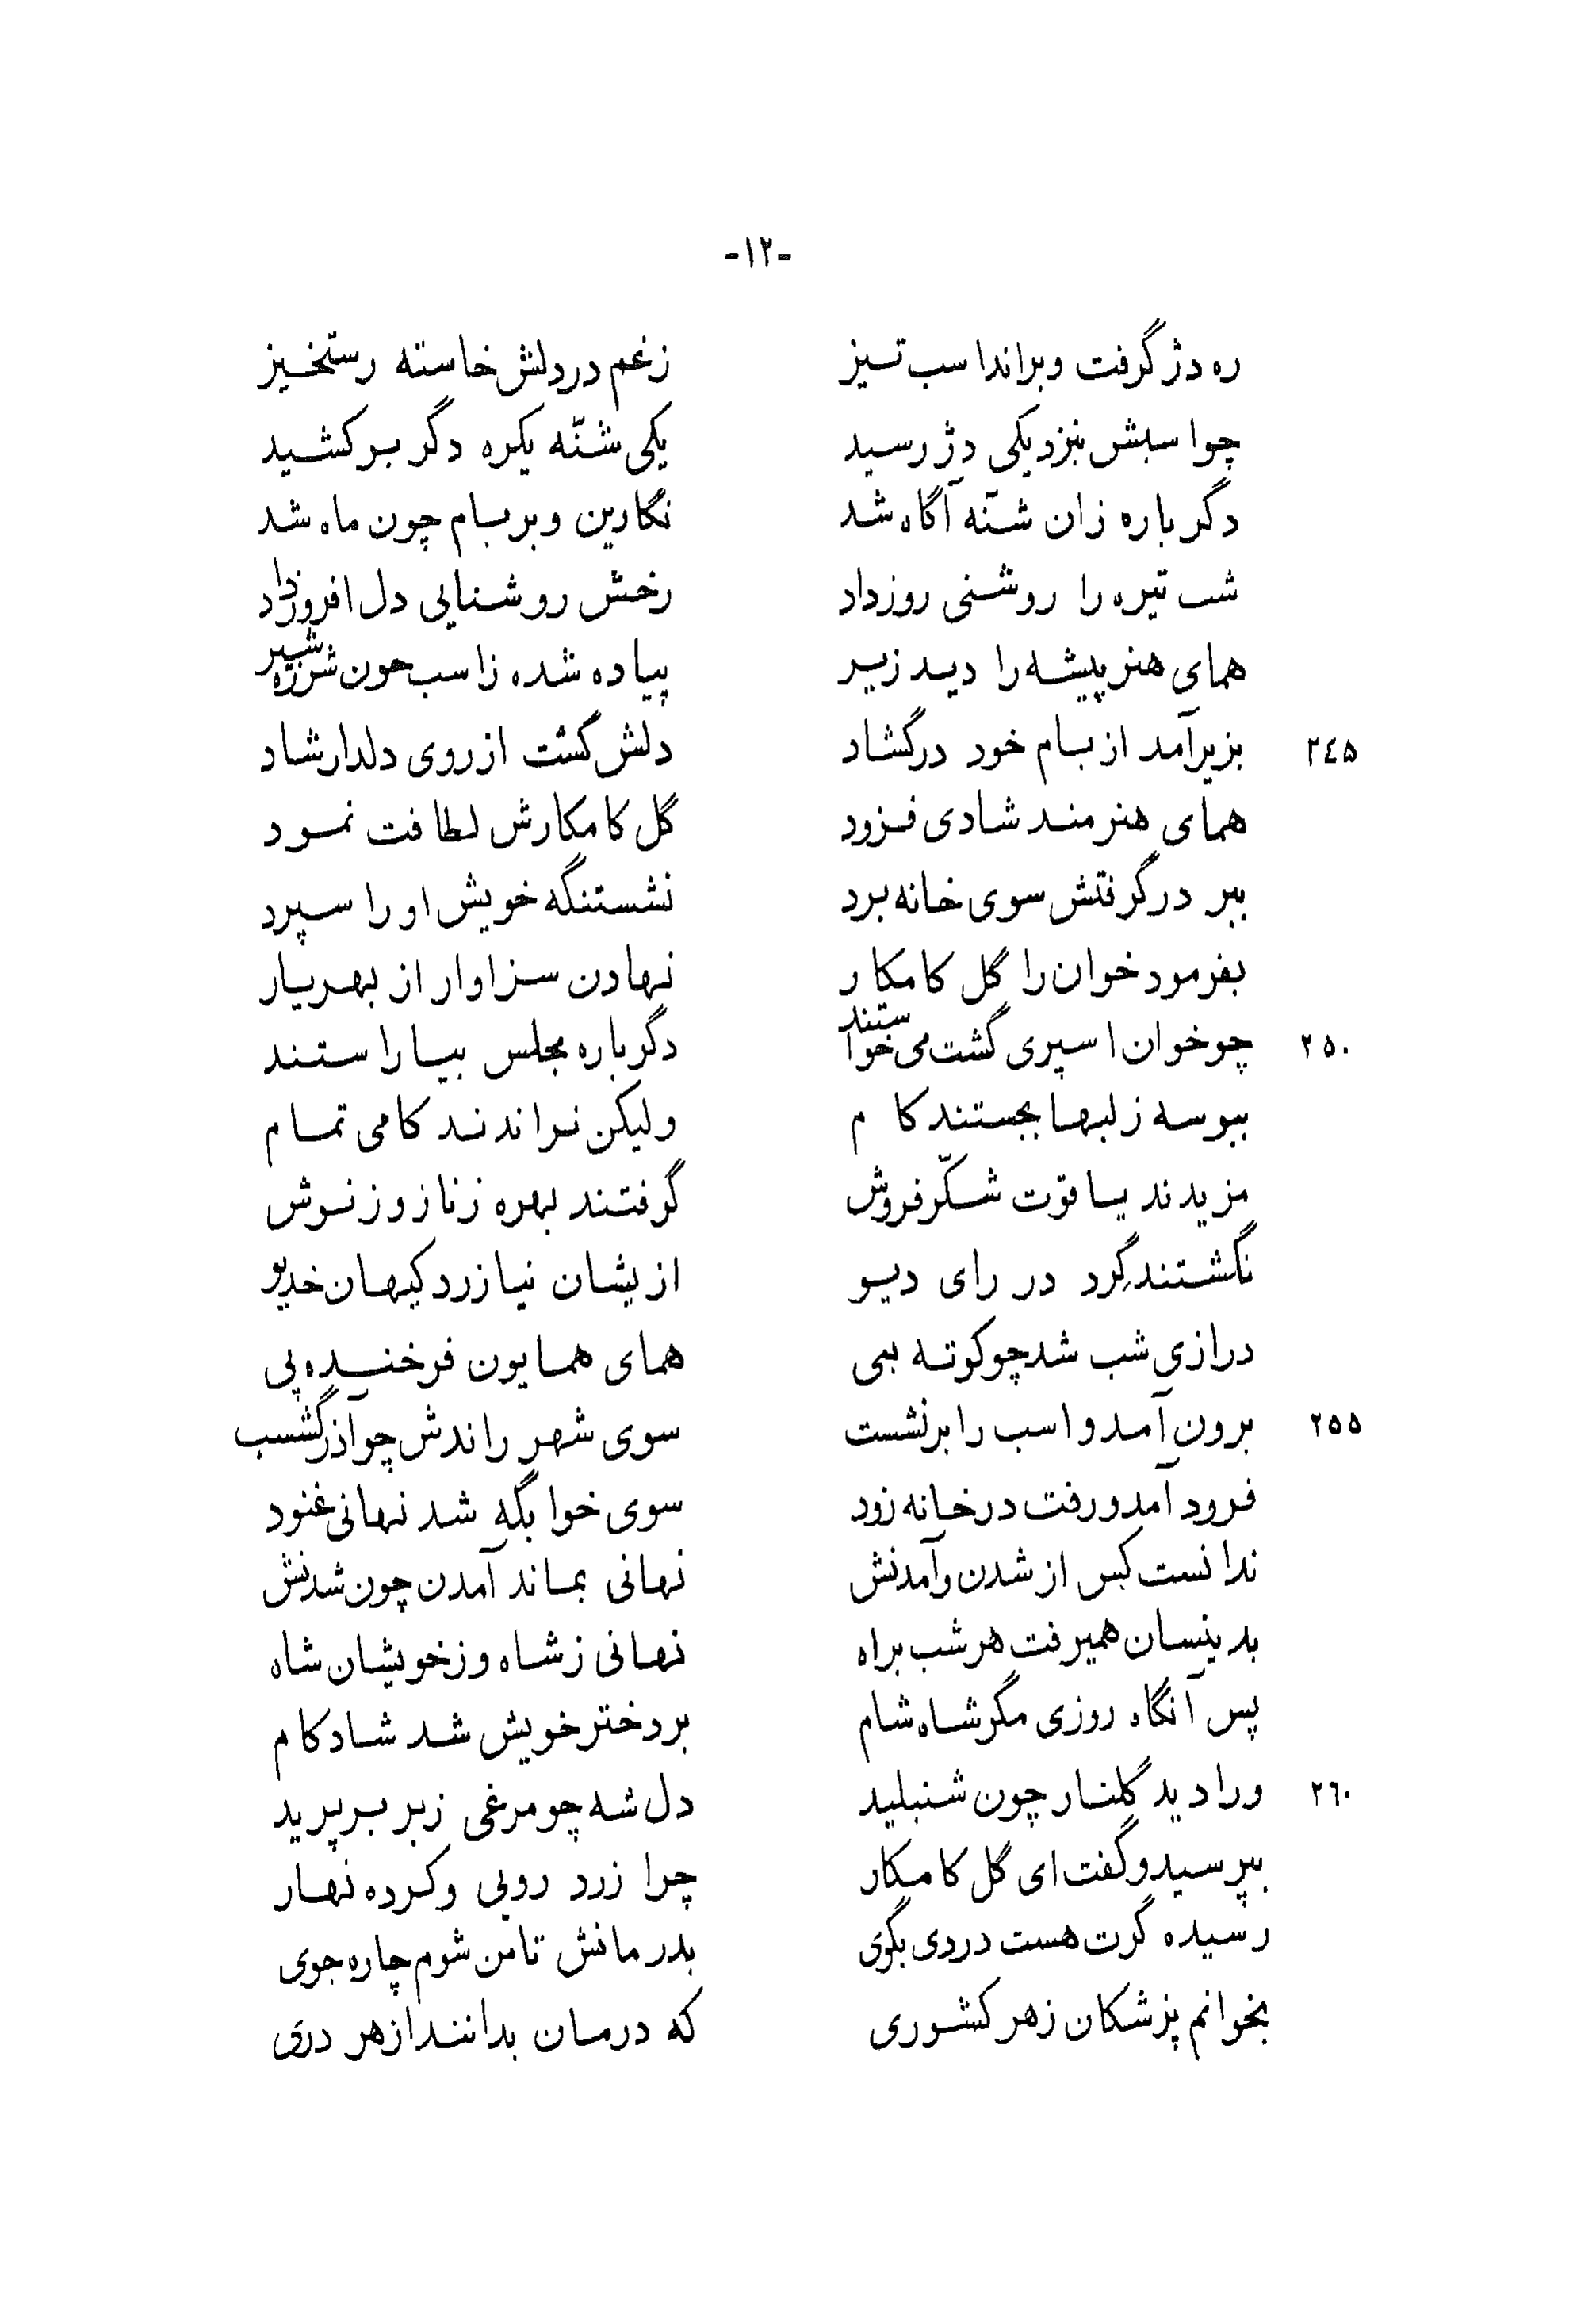 -١٢-
ره دژ گرفت و براند اسب تیز زغم در دلش خاسته رستخیز
چو اسبش بنزدیکی دژ رسید یکی شنّه یکره دگر برکشید
دگر باره زان شنّه آگاه شد نگارین و بر بام چون ماه شد
شب تیره را روشنی روز داد رخش روشنایی دل افروز داد
همای هنر پیشه را دید زیر پیاده شده زاسب چون شرزه شیر
٢٤٥ بزیر آمد از بام خود در گشاد دلش گشت از روی دلدار شاد
همای هنرمند شادی فزود گل کامکارش لطافت نمود
ببر در گرفتش سوی خانه برد نشستنگه خویش او را سپرد
بفرمود خوان را گل کامکار نهادن سزاوار از بهر یار
٢٥٠ چو خوان اسپری گشت می خواستند دگر باره مجلس بیاراستند
ببوسه زلبها بجستند کام ولیکن نراندند کامی تمام
مزیدند یاقوت شکّر فروش گرفتند بهره زناز و زنوش
نگشتند گِرد در رای دیو ازیشان نیازرد کیهان خدیو
درازی شب شد چو کوته بمی همای همایون فرخنده پی
٢٥٥ برون آمد و اسب را برنشست سوی شهر راندش چو آذرگشسب
فرود آمد و رفت در خانه زود سوی خوابگه شد نهانی غنود
ندانست کس از شدن وآمدنش نهانی بماند آمدن چون شدنش
بدینسان همیرفت هر شب براه نهانی زشاه و زخویشان شاه
پس آنگاه روزی مگر شاه شام بر دختر خویش شد شادکام
٢٦٠ ورا دید گلنار چون شنبلید دل شه چو مرغی زبر بر پرید
بپرسید و گفت ای گل کامکار چرا زرد رویی و کرده نهار
رسیده گرت هست دردی بگوی بدرمانش تا من شوم چاره جوی
بخوانم پزشکان زهر کشوری که درمان بدانند از هر دری